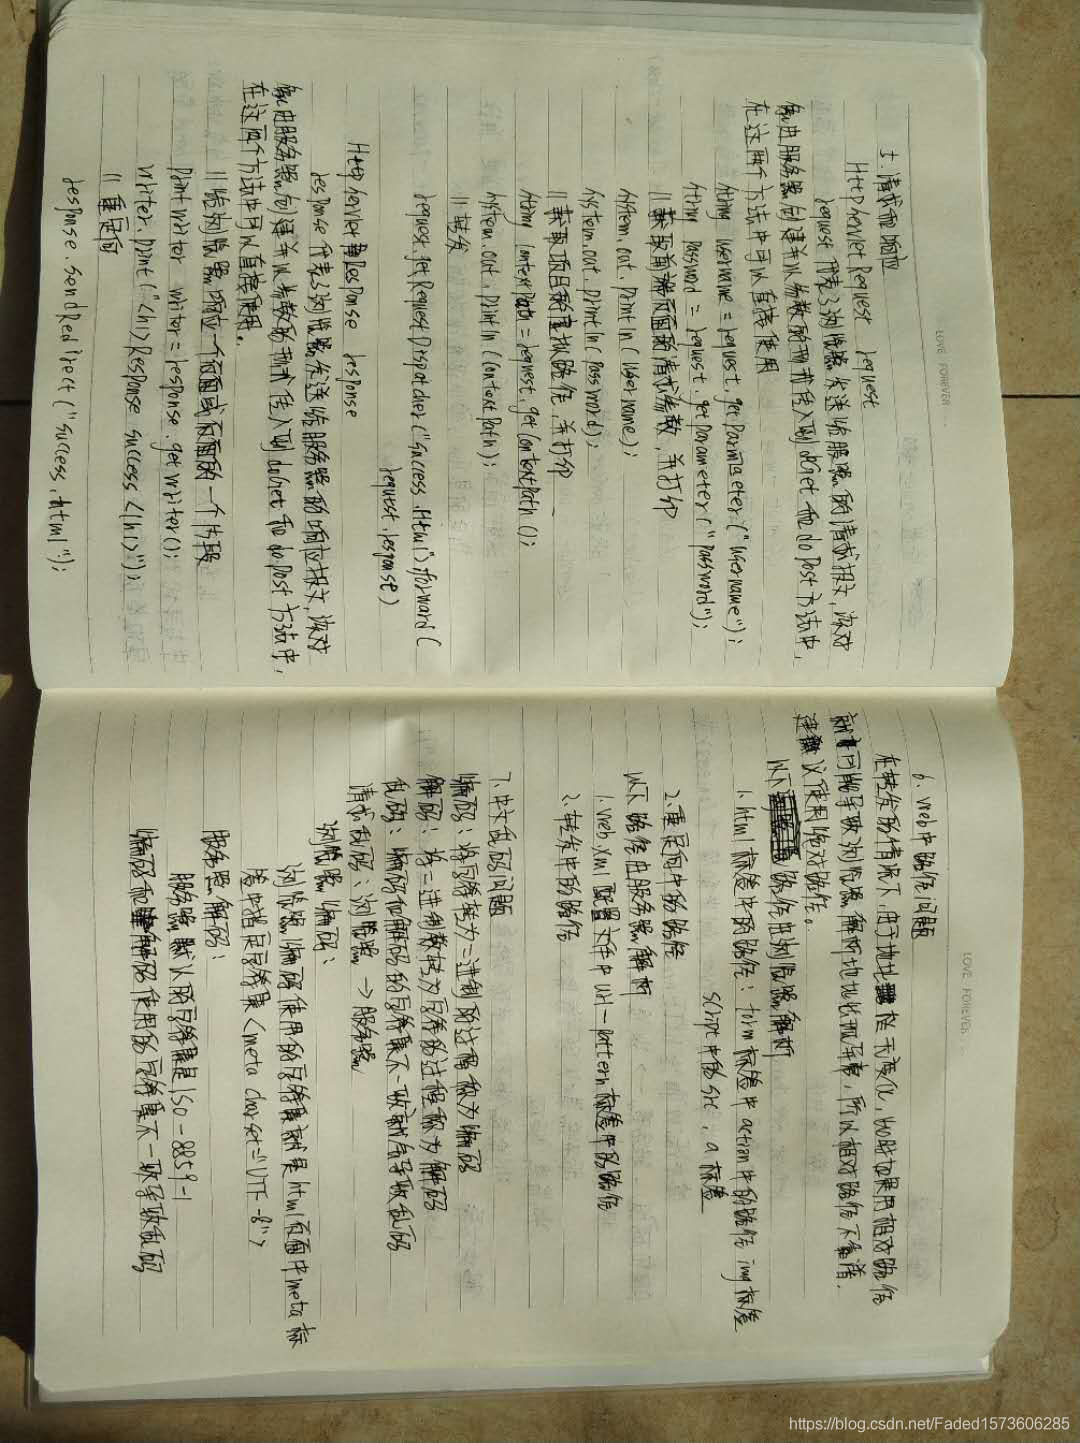 LOVE FOREVER
5. 请求和响应
HttpServletRequest request
request 代表了浏览器发送给服务器的请求报文, 该对
象由服务器创建并以参数的形式传入到 doGet 和 doPost 方法中,
在这两个方法中可以直接使用
String username = request.getParameter("username");
String password = request.getParameter("password");
// 获取前端页面的请求参数, 并打印
System.out.println(username);
System.out.println(password);
// 获取项目的虚拟路径, 并打印
String contextPath = request.getContextPath();
System.out.println(contextPath);
// 转发
request.getRequestDispatcher("success.html").forward(
request.response)
HttpServletResponse response
response 代表了浏览器发送给服务器的响应报文, 该对
象由服务器创建并以参数的形式传入到 doGet 和 doPost 方法中,
在这两个方法中可以直接使用.
// 给浏览器响应一个页面或页面的一个片段
PrintWriter writer = response.getWriter();
writer.print("<h1>Response success</h1>");
// 重定向
response.sendRedirect("success.html");
LOVE FOREVER
6. web中路径问题
在转发的情况下, 由于地址栏无变化, 此时如果用相对路径
就有可能导致浏览器解析地址出现异常, 所以相对路径不靠谱.
建议使用绝对路径。
以下路径由浏览器解析
1. html 标签中的路径: form 标签中 action 中的路径 img 标签
script 中的 src, a 标签
2. 重定向中的路径
以下路径由服务器解析
1. web.xml 配置文件中 url-pattern 标签中的路径
2. 转发中的路径
7. 中文乱码问题
编码: 将字符转为二进制的过程称为编码
解码: 将二进制数转为字符的过程称为解码
乱码: 编码和解码的字符集不一致就会导致乱码
请求乱码: 浏览器 -> 服务器
浏览器编码:
浏览器编码使用的字符集就是html页面中meta标
签中指定字符集 <meta charset="UTF-8">
服务器解码:
服务器默认的字符集是 ISO-8859-1
编码和解码使用的字符集不一致导致乱码
https://blog.csdn.net/Faded1573606285